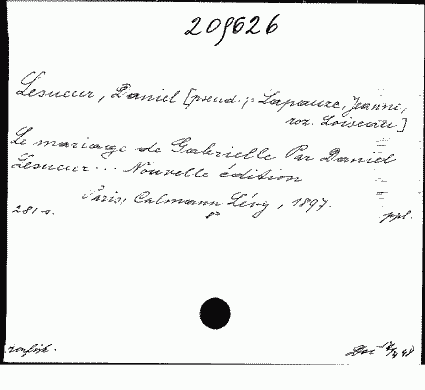 209626
Lesueur, Daniel [pseud.; Lapauze, Jeanne,
roz. Loiseau]
Le mariage de Gabrielle Par Daniel
Lesueur... Nouvelle édition
Paris, Calmann Lévy, 1897.
281 s. ppl.